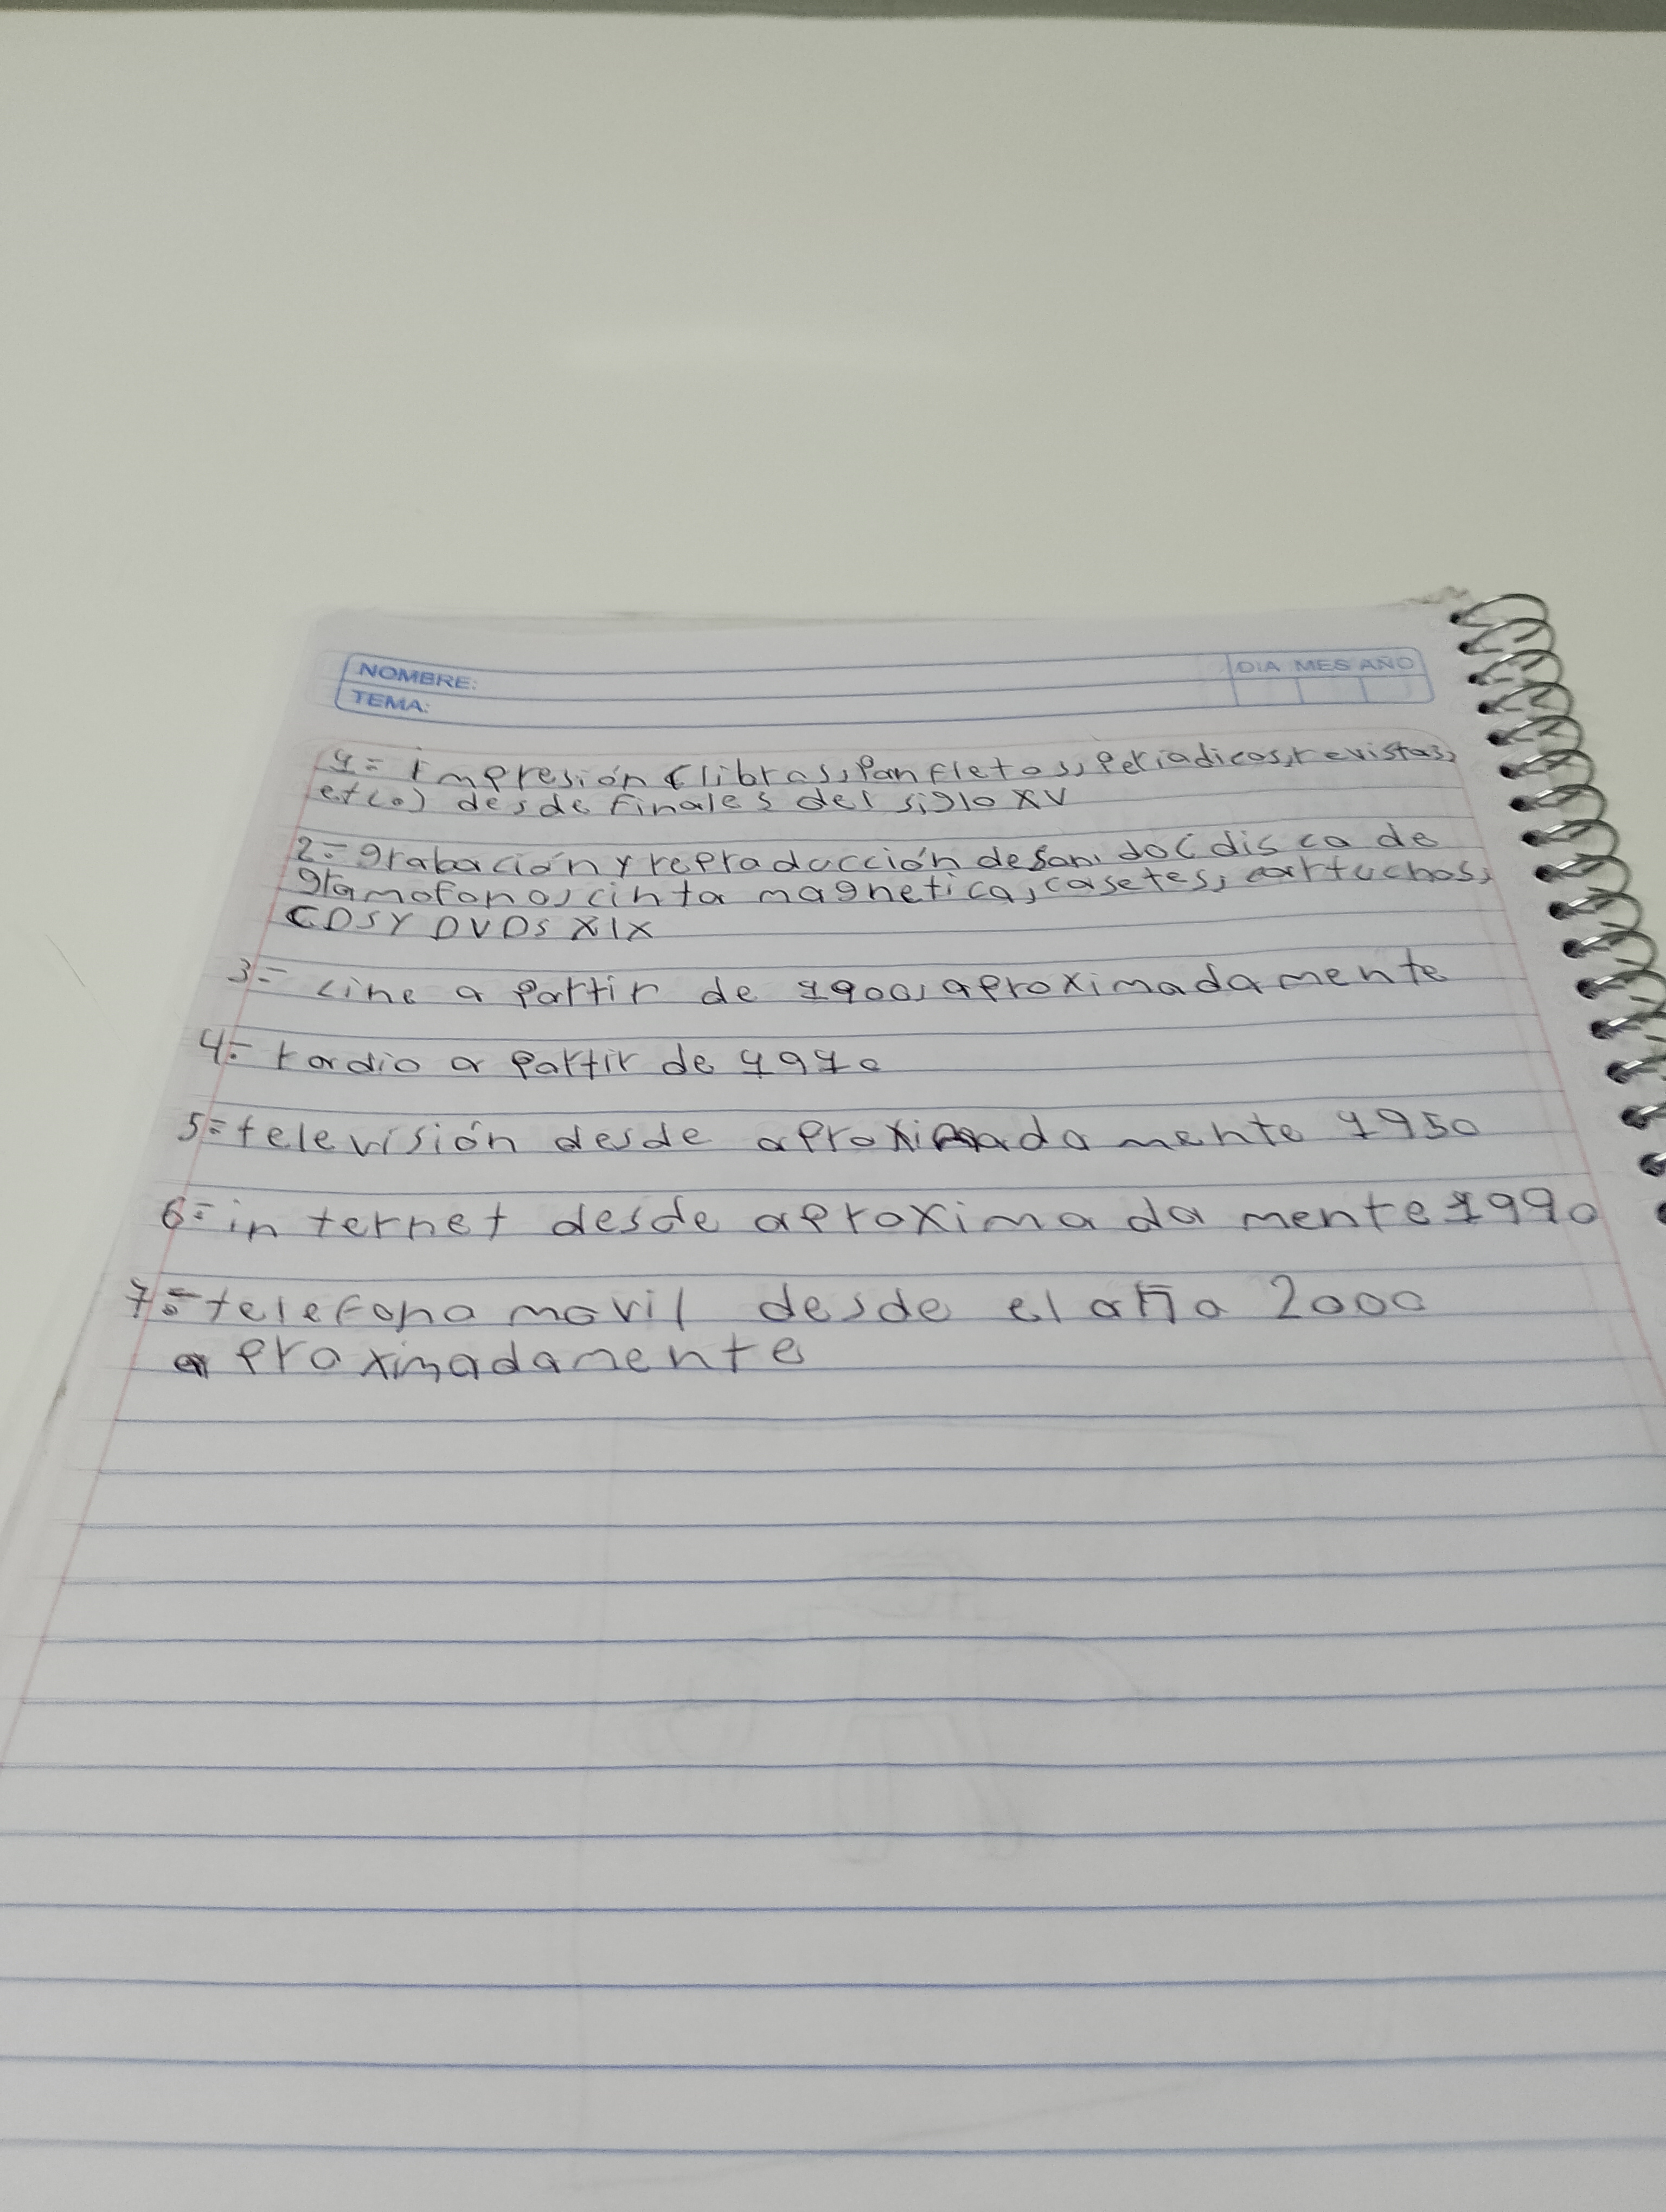 NOMBRE:
DIA MES AÑO
TEMA:
1= impresión (libros, Panfletos, Periodicos, revistas,
etc.) desde finales del siglo XV
2= grabación y reproducción de sonido (disco de
gramofono, cinta magnetica, casetes, cartuchos,
CDS Y DVDS XIX
3= cine a partir de 1900, aproximadamente
4= radio a partir de 1910
5= televisión desde aproximadamente 1950
6= internet desde aproximadamente 1990
7= telefono movil desde el año 2000
aproximadamente